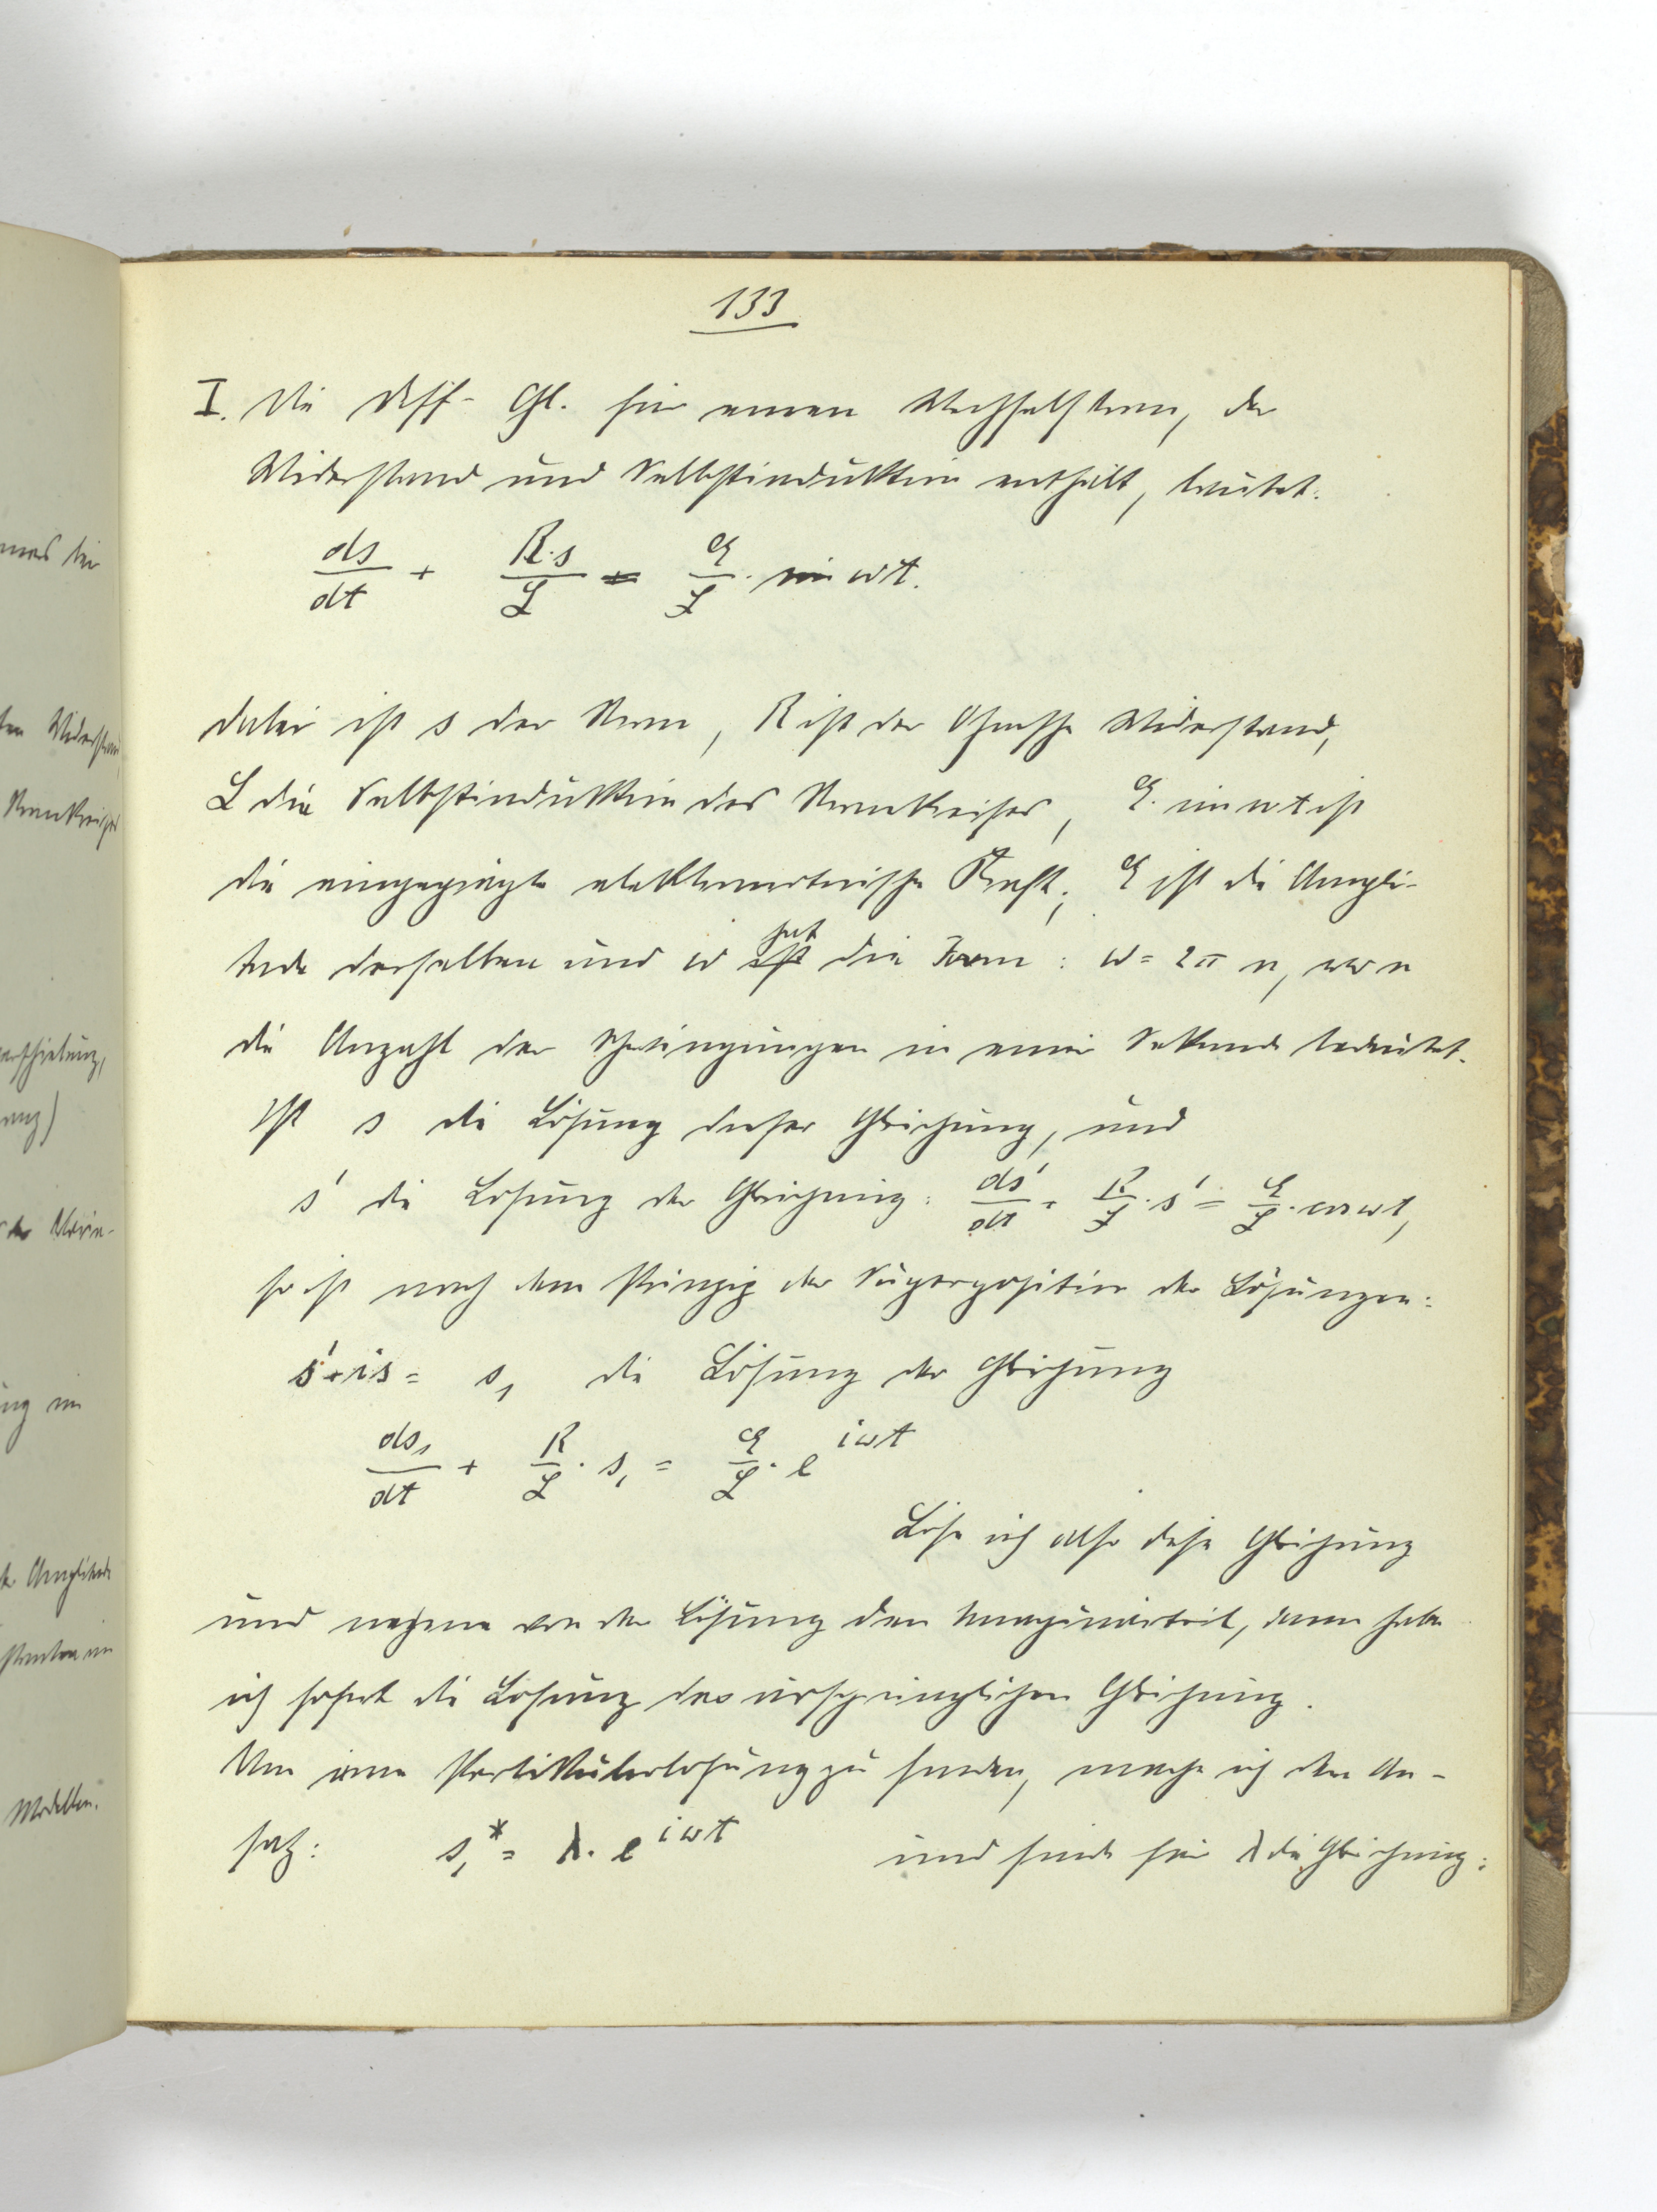 133
I. Die Diff-Gl. für einen Wechselstrom, der
Widerstand und Selbstinduktion enthält, lautet:
ds/dt + R·s/L = E/L · sin ωt.
dabei ist s der Strom, R ist der Ohmsche Widerstand,
L die Selbstinduktion des Stromkreises, E·sin ωt ist
die eingeprägte elektromotorische Kraft; E ist die Ampli-
tude derselben und ω hat die Form: ω = 2π n, wo n
die Anzahl der Schwingungen in einer Sekunde bedeutet.
Ist s die Lösung dieser Gleichung, und
s' die Lösung der Gleichung: ds'/dt + R/L · s' = E/L · cos ωt,
so ist nach dem Prinzip der Superposition der Lösungen:
s' + is = s₁ die Lösung der Gleichung
ds₁/dt + R/L · s₁ = E/L · e^{iωt}
Löse ich also diese Gleichung
und nehme von der Lösung den Imaginärteil, dann habe
ich sofort die Lösung der ursprünglichen Gleichung.
Um eine Partikulärlösung zu finden, mache ich den An-
satz: s₁* = λ· e^{iωt} und finde für λ die Gleichung: